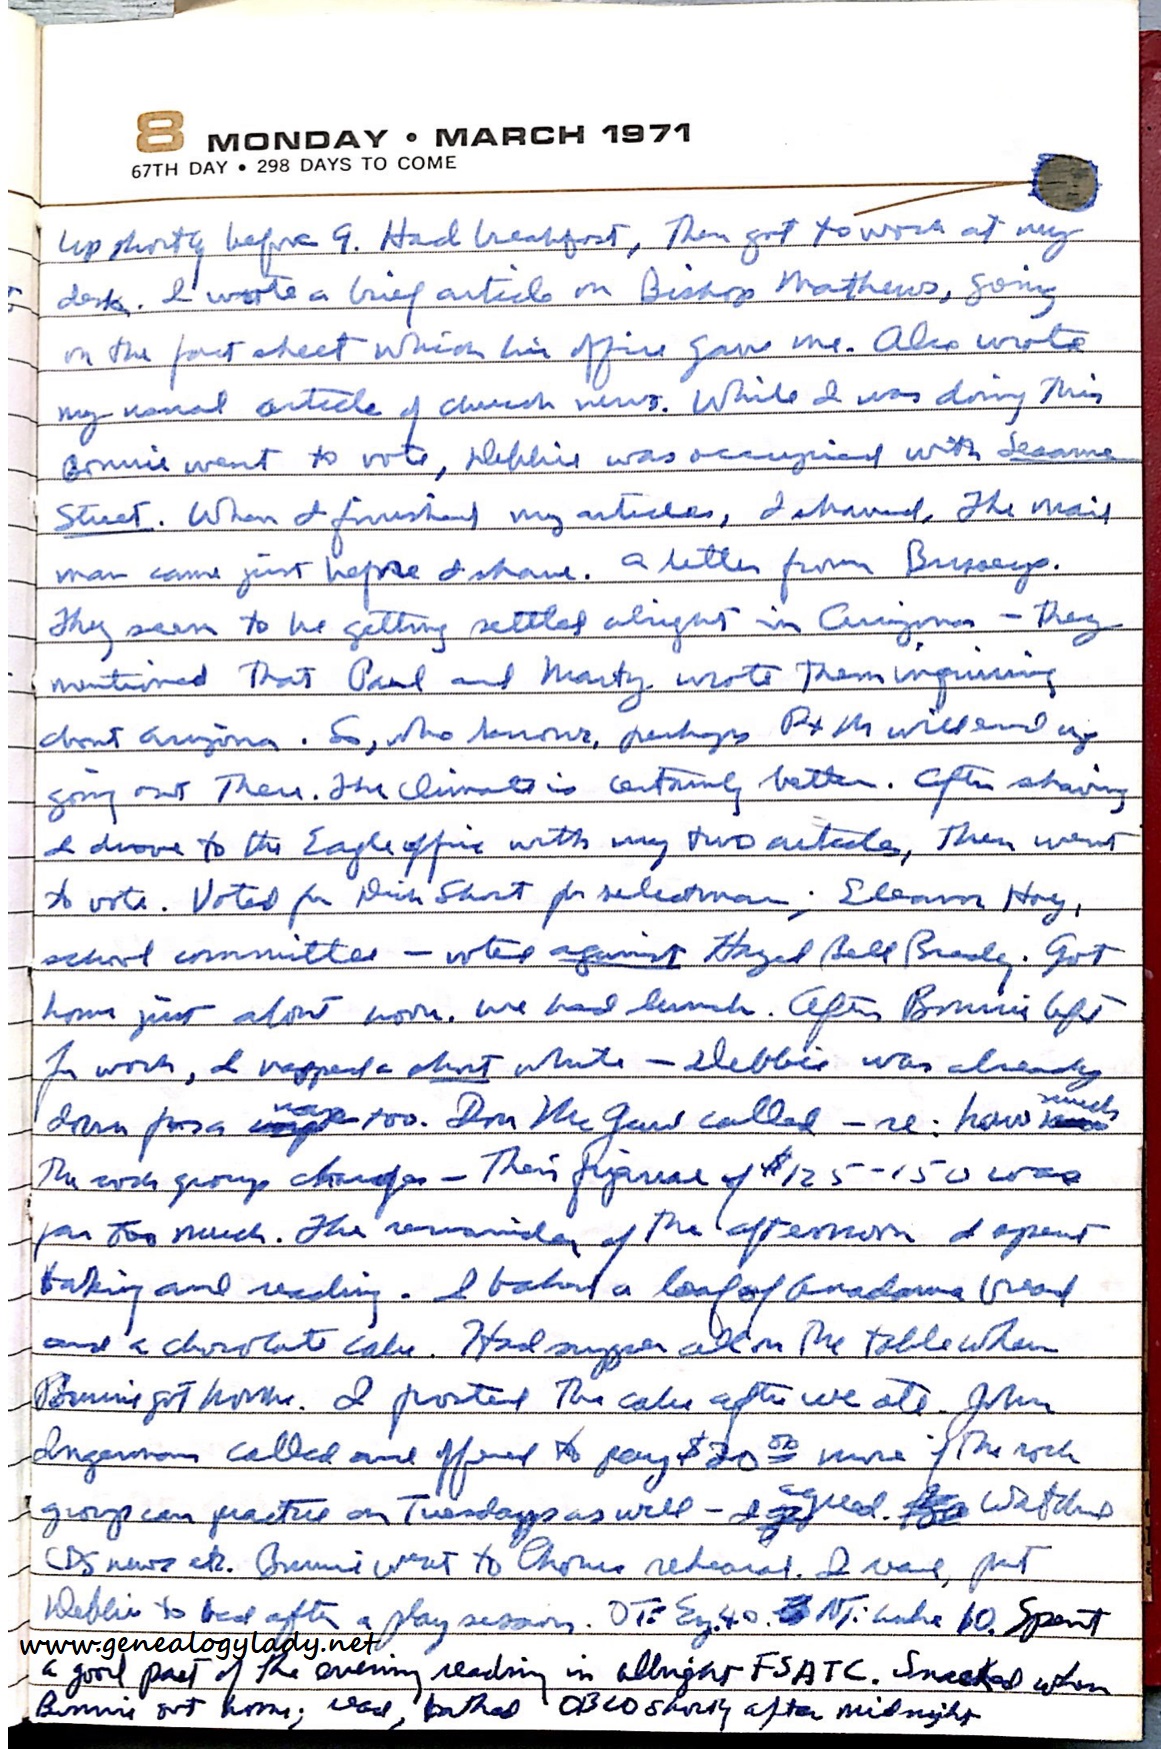 8 MONDAY • MARCH 1971
67TH DAY • 298 DAYS TO COME
Up shortly before 9. Had breakfast, then got to work at my
desk. I wrote a brief article on Bishop Mathews, going
on the fact sheet which his office gave me. Also wrote
my usual article of church news. While I was doing this
Bonnie went to vote, Debbie was occupied with Sesame
Street. When I finished my articles, I shaved. The mail
man came just before I shave. A letter from Busseys.
They seem to be getting settled alright in Arizona – they
mentioned that Paul and Marty wrote them inquiring
about Arizona. So, who knows, perhaps P + M will end up
going out there. The climate is certainly better. After shaving
I drove to the Eagle office with my two articles, then went
to vote. Voted for Dick Short for selectman; Eleanor
school committee – voted against Hazel Bell Brady. Got
home just about noon. We had lunch. After Bonnie left
for work, I napped a short while – Debbie was already
down for a nap too. Don called – re: how much
the rock group charges – Their figure of $125-150 was
far too much. The remainder of the afternoon I spent
baking and reading. I baked a loaf of Anadama bread
and a chocolate cake. Had supper all on the table when
Bonnie got home. I frosted the cake after we ate. John
Ingerman called and offered to pay $20 00 more if the rock
group can practice on Tuesdays as well – I agreed. Watched
CBS news etc. Bonnie went to Chorus rehearsal. I read, put
Debbie to bed after a play session. OT: Ez. 40. NT: Luke 10. Spent
www.genealogylady.net
a good part of the evening reading in allnight FSATC. Snacked when
Bonnie got home; read, bathed OBLO shortly after midnight